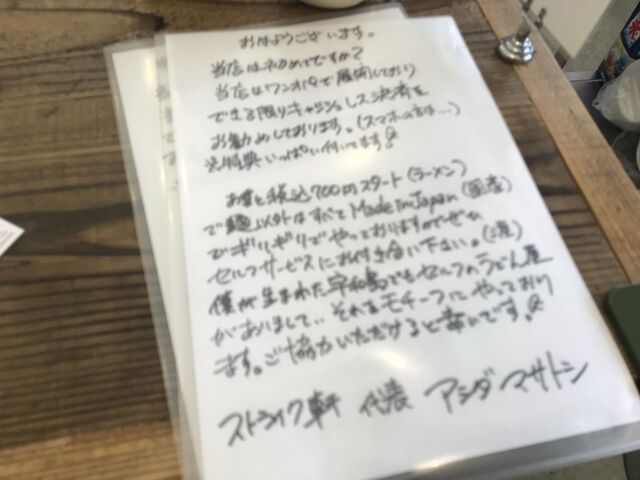 おはようございます。
当店は初めてですか?
当店はワンオペで展開しており
できる限りキャッシュレス決済を
お勧めしております。(スマホの方は...)
※特典いっぱい付いてます!
お昼と税込700円スタート(ラーメン)
で麺以外はすべてMade In Japan(国産)
でギリギリでやっておりますのでぜひ
セルフサービスにお付き合い下さい。(涙)
僕が生まれた宇和島でもセルフのうどん屋
がありまして、それをモチーフにやっており
ます。ご協力いただけると幸いです。
ストライク軒 代表 アシダマサトシ